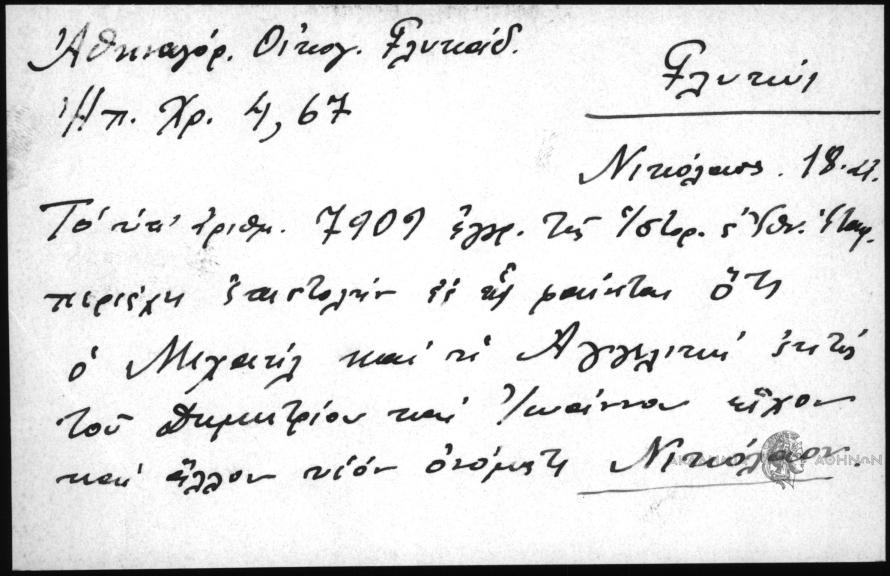 Ἀθηναγόρ. Οἰκογ. Γλυκάδ.
Ἠπ. Χρ. 4, 67
Γλυκύς
Νικόλαος. 18.
Τό ὑπ' ἀριθμ. 7909 ἔγγρ. τῆς Ἱστορ. ἐθν. ἑταιρ.
περιέχει ἐπιστολήν ἐξ ἧς φαίνεται ὅτι
ὁ Μιχαήλ καί ἡ Ἀγγελική ἐκτός
τοῦ Δημητρίου καί Ἰωάννου εἶχον
καί ἄλλον υἱόν ὀνόματι Νικόλαον.
ΑΚΑΔΗΜΙΑ ΑΘΗΝΩΝ